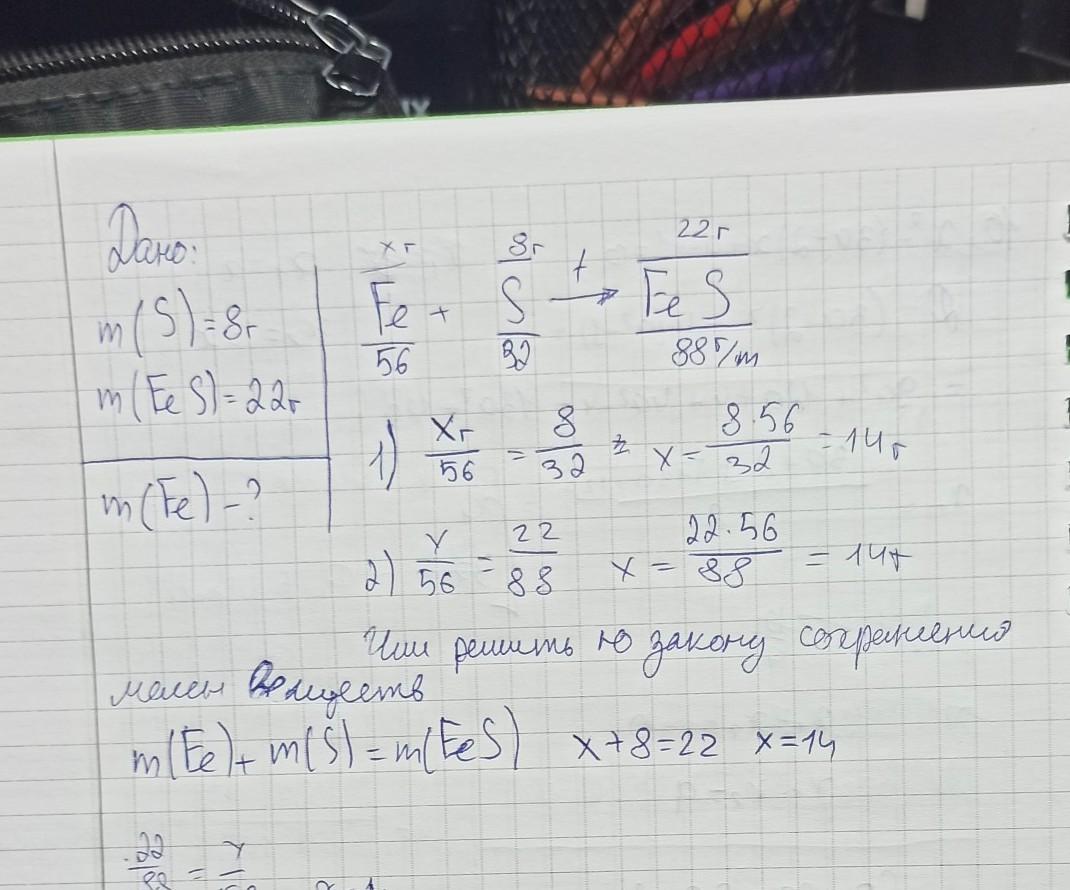 Дано:
m(S)=8г
m(FeS)=22г
m(Fe)-?
xг 8г 22г
Fe + S t → FeS
56 32 88г/m
1) xг/56 = 8/32 x = 8·56/32 = 14г
2) x/56 = 22/88 x = 22·56/88 = 14г
Или решить по закону сохранения
массы веществ
m(Fe)+m(S)=m(FeS) x+8=22 x=14
22/88 = x